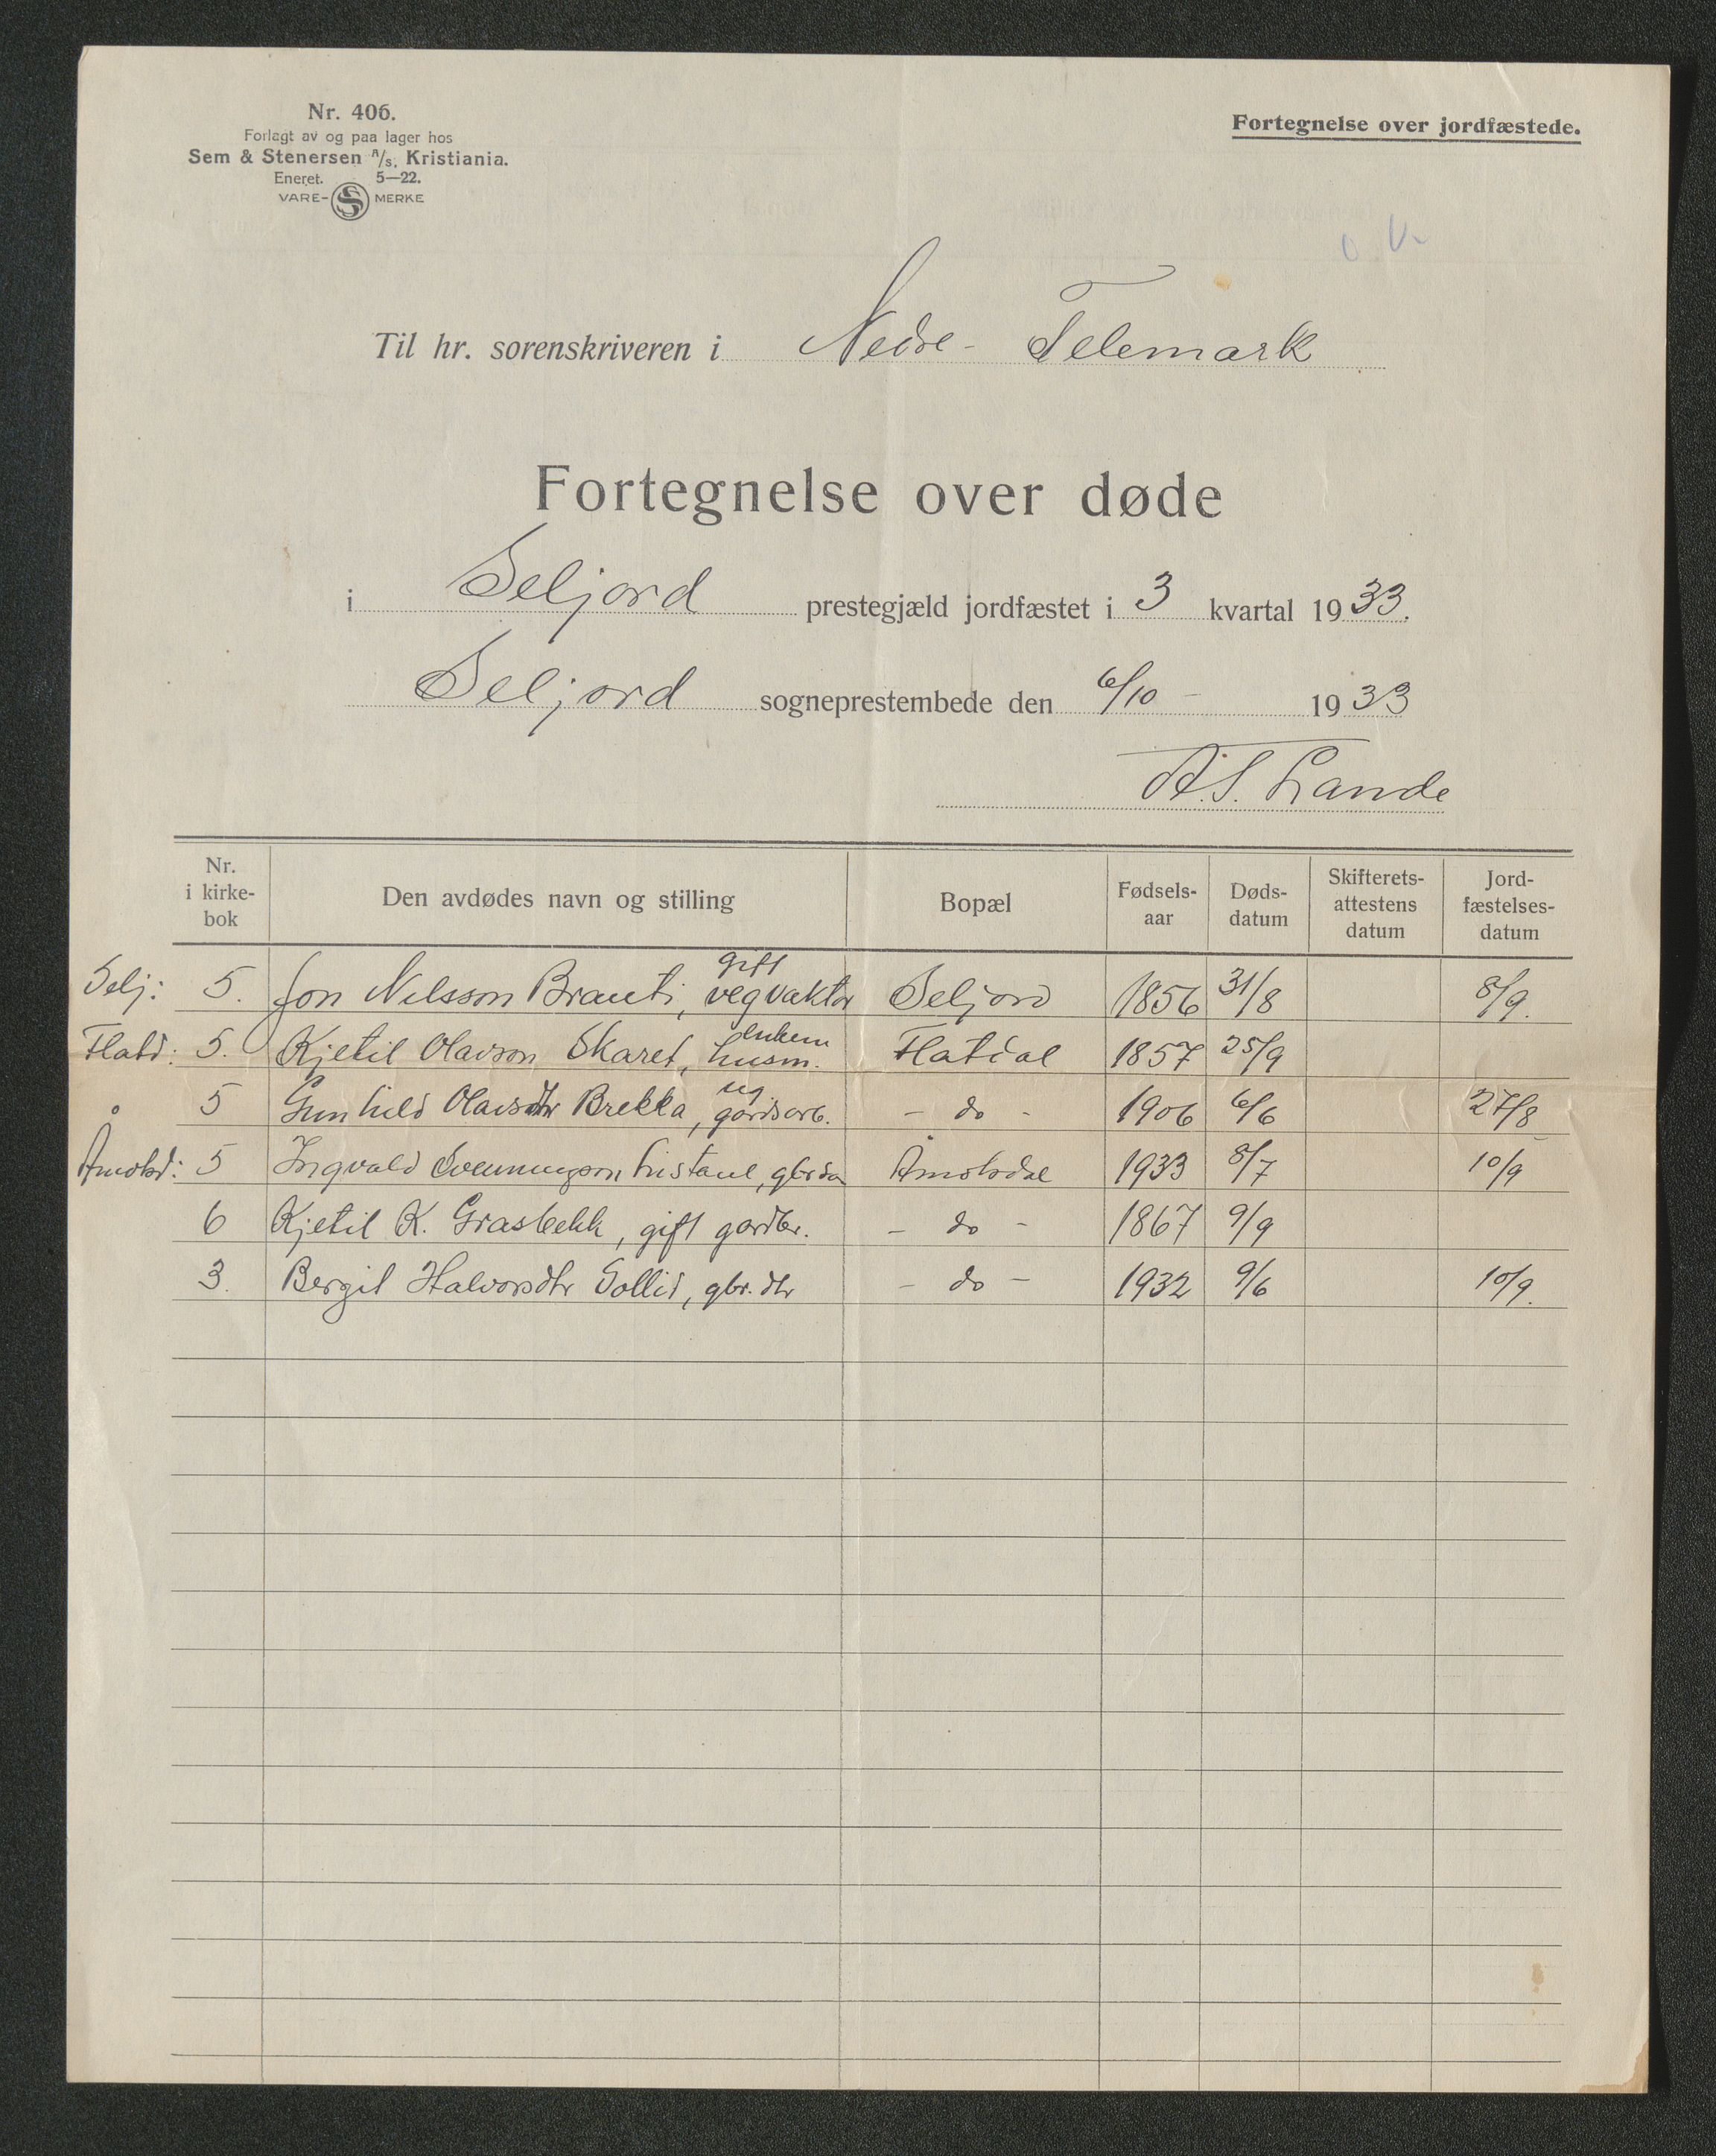 Nr. 406.
Forlagt av og paa lager hos
Sem & Stenersen A/S, Kristiania.
Eneret. 5—22.
VARE- S MERKE
Fortegnelse over jordfæstede.
Til hr. sorenskriveren i Nedre - Telemark
Fortegnelse over døde
i Seljord prestegjæld jordfæstet i 3 kvartal 1933.
Seljord sogneprestembede den 6/10 - 1933
A.S. Lande
Nr. i kirke-bok Den avdødes navn og stilling Bopæl Fødsels-aar Døds-datum Skifterets-attestens datum Jord-fæstelses-datum
Selj: 5. Jon Nilsson Brauti, gift vegvaktar Seljord 1856 31/8 8/9.
Flatd: 5. Kjetil Olavson Skaret, enkem husm. Flatdal 1857 25/9
5 Gunhild Olavsdtr Brekka, ug gardsarb. - do - 1906 6/6 27/8
Åmotsd: 5 Ingvald Sveinungson, gbrsøn Åmotsdal 1933 8/7 10/9
6 Kjetil K. Grasbekk, gift gardbr. - do - 1867 9/9
3. Bergit Halvorsdtr Sollid, gbr. dtr - do - 1932 9/6 10/9.